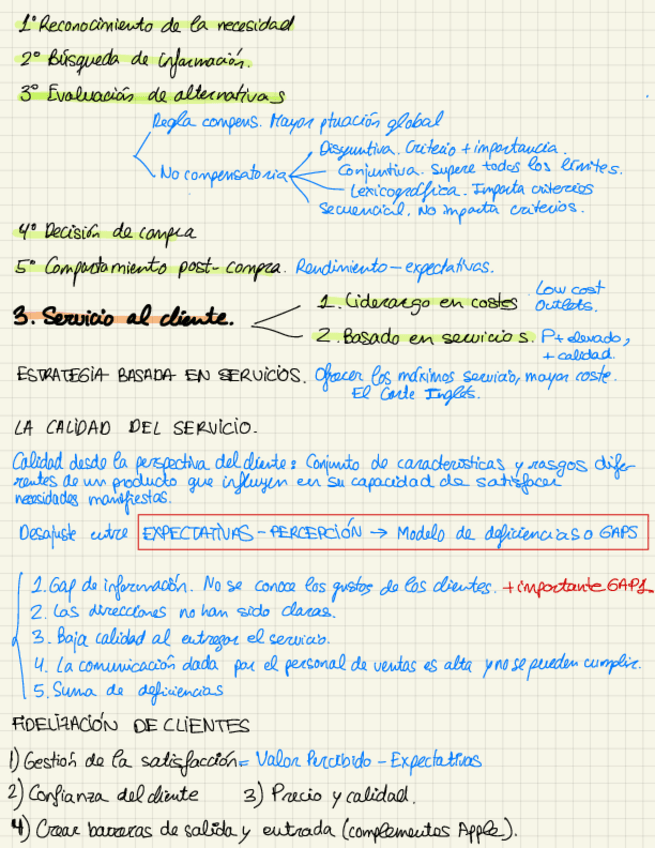 1º Reconocimiento de la necesidad
2º Búsqueda de información.
3º Evaluación de alternativas
Regla compens. Mayor ptuación global
No compensatoria
Disyuntiva. Criterio + importancia.
Conjuntiva. Supere todos los límites.
Lexicográfica. Importa criterios
Secuencial. No importa criterios.
4º Decisión de compra
5º Comportamiento post-compra. Rendimiento - expectativas.
3. Servicio al cliente.
1. Liderazgo en costes Low cost
Outlets.
2. Basado en servicios. P + elevado,
+ calidad.
ESTRATEGIA BASADA EN SERVICIOS. Ofrecer los máximos servicio, mayor coste.
El Corte Inglés.
LA CALIDAD DEL SERVICIO.
Calidad desde la perspectiva del cliente: Conjunto de características y rasgos dife-
rentes de un producto que influyen en su capacidad de satisfacer
necesidades manifiestas.
Desajuste entre EXPECTATIVAS - PERCEPCIÓN → Modelo de deficiencias o GAPS
1. Gap de información. No se conoce los gustos de los clientes. + importante GAP1
2. Las direcciones no han sido claras.
3. Baja calidad al entregar el servicio.
4. La comunicación dada por el personal de ventas es alta y no se pueden cumplir.
5. Suma de deficiencias
FIDELIZACIÓN DE CLIENTES
1) Gestión de la satisfacción = Valor Percibido - Expectativas
2) Confianza del cliente 3) Precio y calidad.
4) Crear barreras de salida y entrada (complementos Apple).